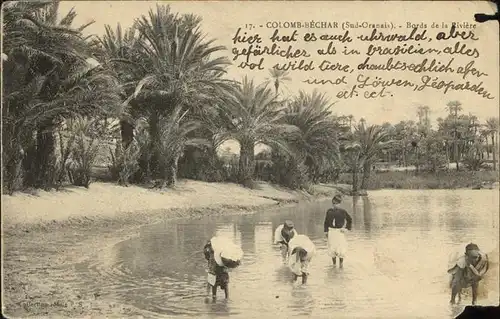 17. - COLOMB-BÉCHAR (Sud-Oranais). - Bords de la Rivière
hier hat es auch Uhrwald, aber
gefärlicher als in brasilien, alles
vol wild tiere, haubtsechlich aber
und Löwen, Leoparden
at ect.
Collection